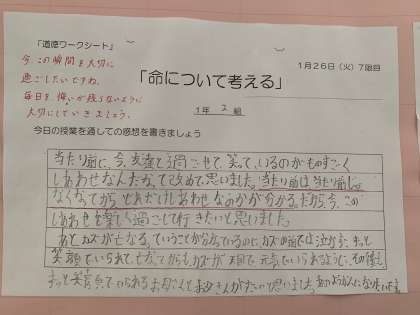 「道徳ワークシート」
今、この瞬間を大切に
過ごしたいですね。
毎日を悔いが残らないように
大切にしていきましょう。
1月26日(火)7限目
「命について考える」
1年 2 組
今日の授業を通しての感想を書きましょう
当たり前に、今、友達と過ごせて、笑っているのがものすごく
しあわせなんだなって改めて思いました。当たり前は、当たり前じゃ
なくなってから、どれだけしあわせなのかが分かる。だから今、この
しあわせを楽しく過ごして行きたいと思いました。
あと、カズが亡くなる、ていうことが分かっているのに、カズの前では泣かず、ずっと
笑顔でいられて、亡くなってからもカズが
ずっと笑顔でいられるお母さんと
思いました。